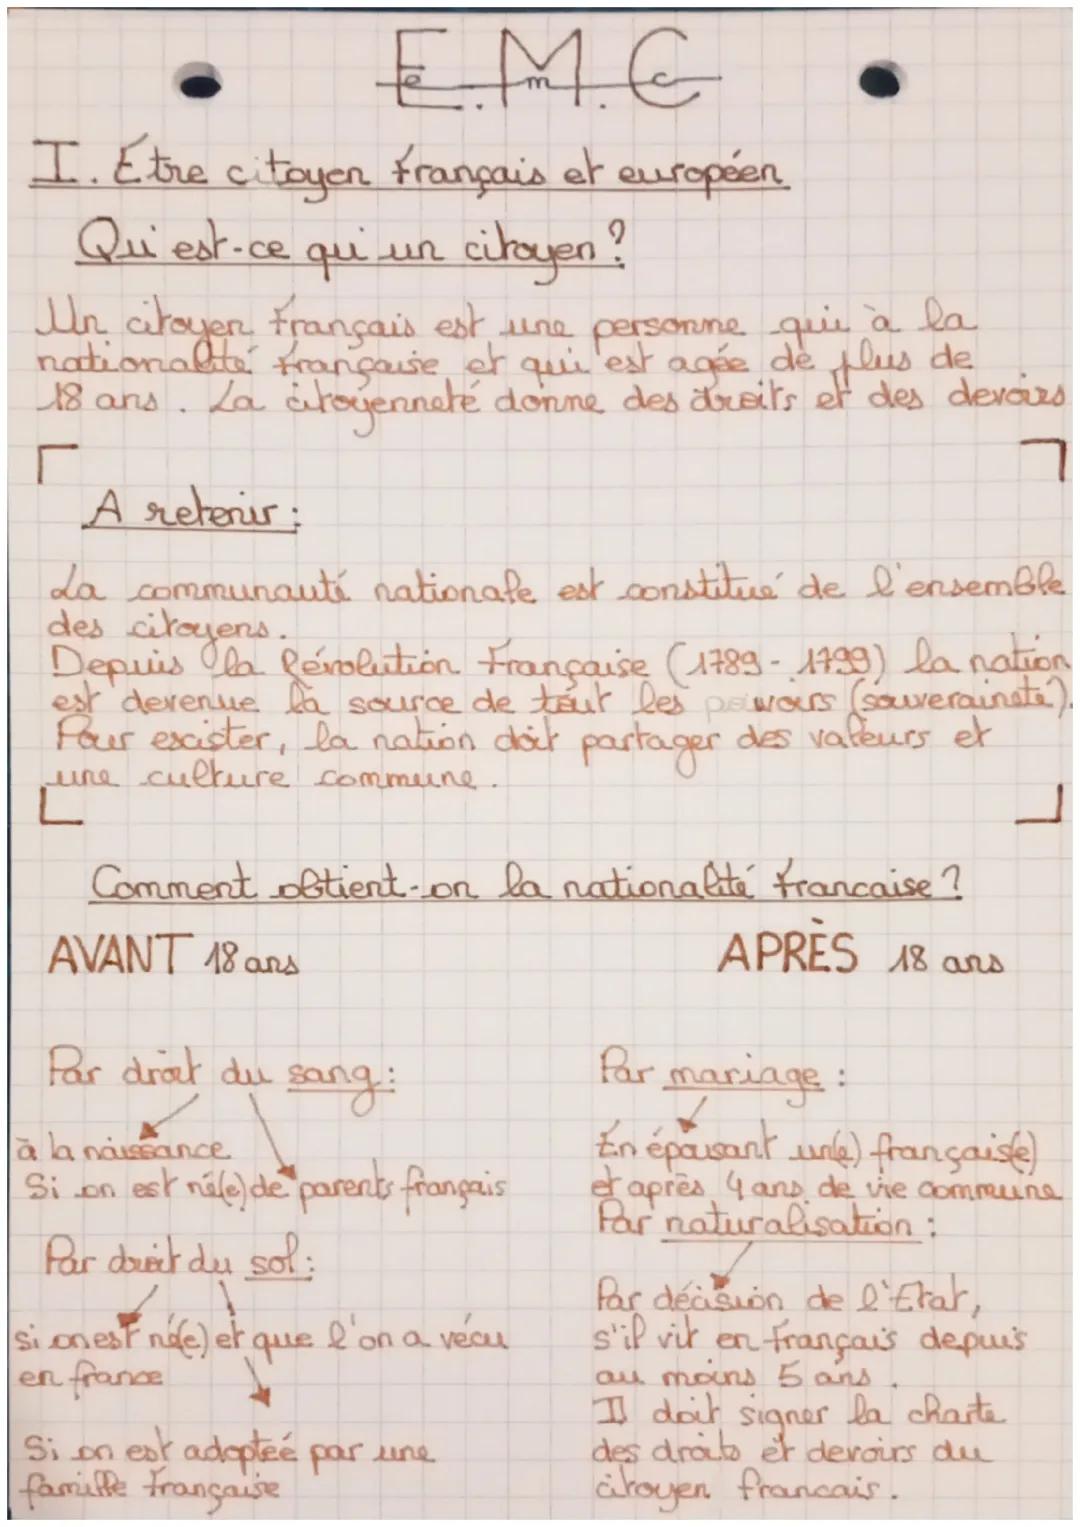 E.M.C
e m c
I. Être citoyen français et européen
Qui est-ce qui un citoyen ?
Un citoyen français est une personne qui à la
nationalité française et qui est agée de plus de
18 ans. La citoyenneté donne des droits et des devoirs
A retenir :
La communauté nationale est constitué de l'ensemble
des citoyens.
Depuis la Révolution Française (1789 - 1799) la nation
est devenue la source de tout les pouvoirs (souveraineté).
Pour exister, la nation doit partager des valeurs et
une culture commune.
Comment obtient-on la nationalité francaise ?
AVANT 18 ans
APRÈS 18 ans
Par droit du sang :
à la naissance
Si on est né(e) de parents français
Par droit du sol :
si on est né(e) et que l'on a vécu
en france
Si on est adopteé par une
famille française
Par mariage :
En épousant un(e) français(e)
et après 4 ans de vie commune
Par naturalisation :
Par décision de l'Etat,
s'il vit en français depuis
au moins 5 ans.
Il doit signer la charte
des droits et devoirs du
citoyen francais.